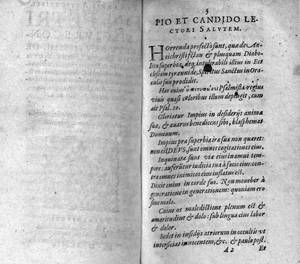 3
PIO ET CANDIDO LE
CTORI SALVTEM.
Horrenda profectò sunt, quæ de An
tichristi factu & plusquam Diabo
lica superbia, deq́ intolerabili illius in Ec
clesiam tyrannide, Spiritus Sanctus in Ora
culis suis prodidit.
Hæc enim Psalmista regius
viuis quasi coloribus illum depingit, cum
ait Psal. 10.
Gloriatur Impius in desiderijs animæ
suæ, & auarus benedicens sibi, blasphemat
Dominum.
Impius præ superbia iræ suæ non quæret:
non est DEVS, sunt omnes cogitationes eius,
Inquinatæ sunt viæ eius in omni tem-
pore: auferuntur iudicia tua à
omnium inimicorum eius
Dixit enim in corde suo. Non mouebor à
generatione in generationem: quoniam ero
sine malo.
Cuius os maledictione plenum est &
amaritudine & dolo: sub lingua eius labor
& dolor.
Sedet in insidijs atriorum in occultis vt
interficiat innocentem, &c. & paulo post.
A 2 Et